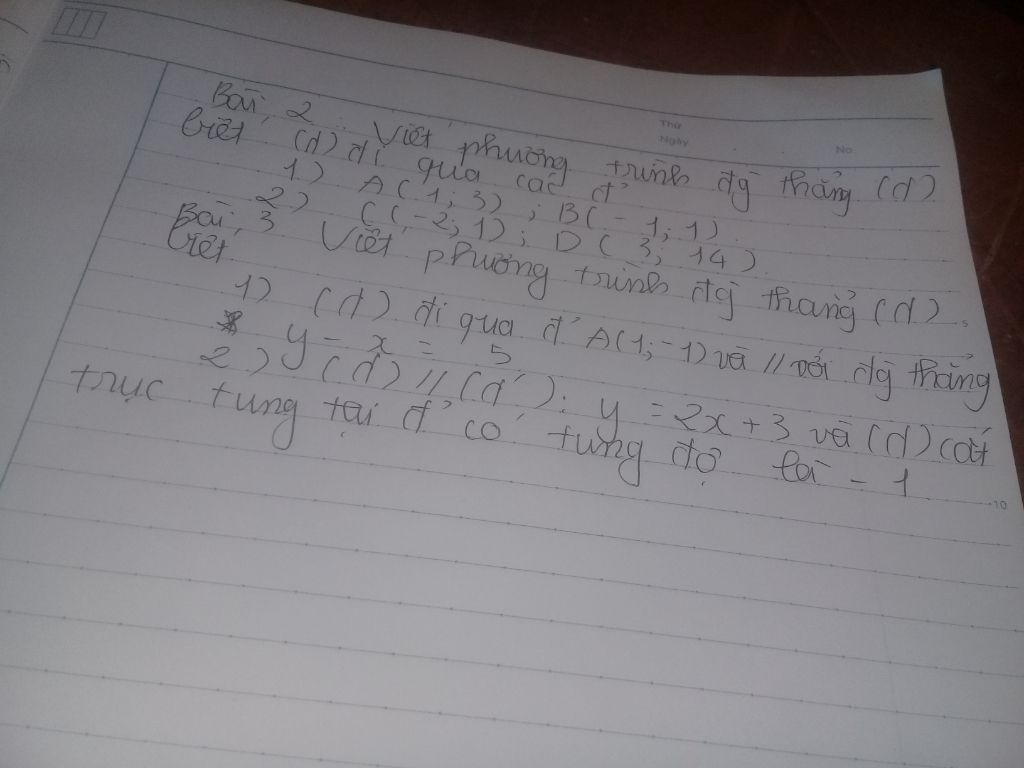 Thứ
Ngày
No
Bài 2 : Viết phương trình đg thẳng (d)
biết (d) đi qua các đ'
1) A(1; 3) ; B(-1; 1).
2) C(-2; 1); D(3; 14).
Bài 3 Viết phương trình đg thẳng (d)
biết
1) (d) đi qua đ' A(1; -1) và // với đg thẳng
y - x = 5
2) (d) // (d'): y = 2x + 3 và (d) cắt
trục tung tại đ' có tung độ là - 1
10